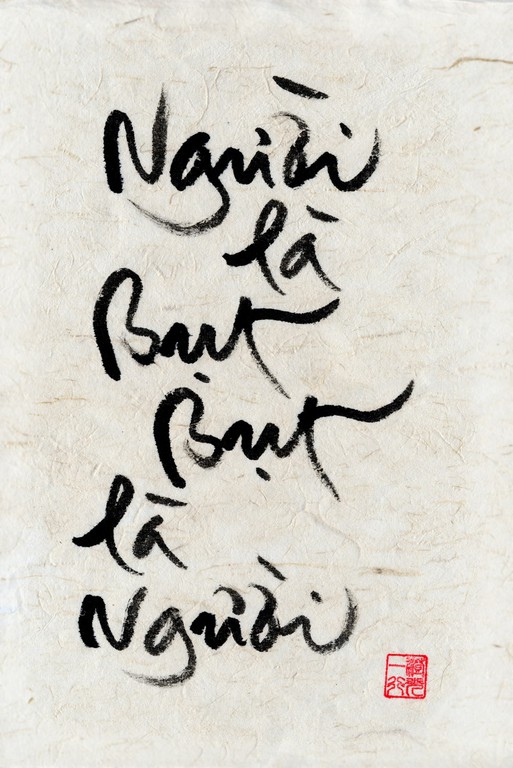 Người
là
Bụt
Bụt
là
Người
澄光
一行